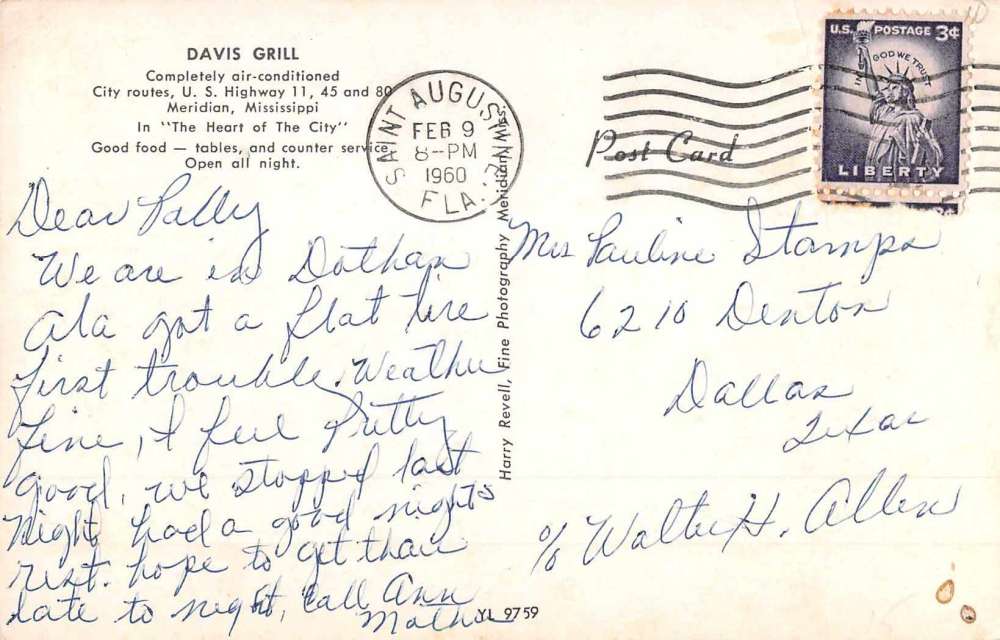 DAVIS GRILL
Completely air-conditioned
City routes, U. S. Highway 11, 45 and 80
Meridian, Mississippi
In "The Heart of The City"
Good food — tables, and counter service
Open all night.
SAINT AUGUSTINE
FEB 9
8-PM
1960
FLA.
U.S. POSTAGE 3¢
IN GOD WE TRUST
LIBERTY
Post Card
Harry Revell, Fine Photography Meridian, Miss.
Dear Polly
We are in Dothan
Ala got a flat tire
first trouble. Weather
fine, I feel Pretty
good, we stopped last
Night had a good nights
rest. hope to get thair
late to night, Call Ann
Mother
Mrs Pauline Stamps
6210 Denton
Dallas
Texas
c/o Walter H. Allen
YL 9759